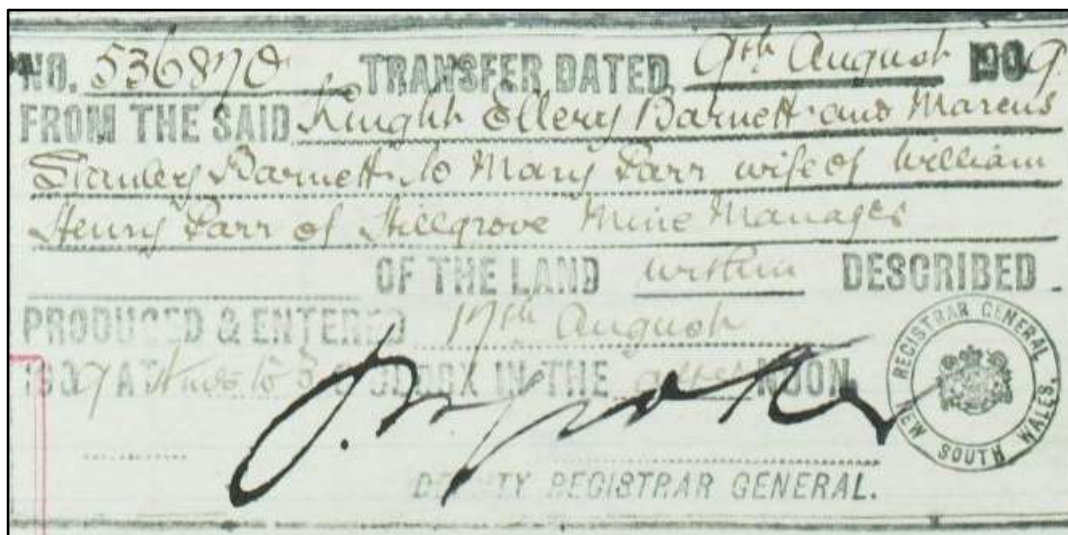 NO. 536870 TRANSFER DATED, 9th August 1909
FROM THE SAID Knight Ellery Barnett and Marcus
Stanley Barnett to Mary Parr wife of William
Henry Parr of Hillgrove Mine Manager
OF THE LAND within DESCRIBED
PRODUCED & ENTERED 17th August
1909 AT to 3 O'CLOCK IN THE after NOON.
DEPUTY REGISTRAR GENERAL.
REGISTRAR GENERAL
NEW SOUTH WALES.